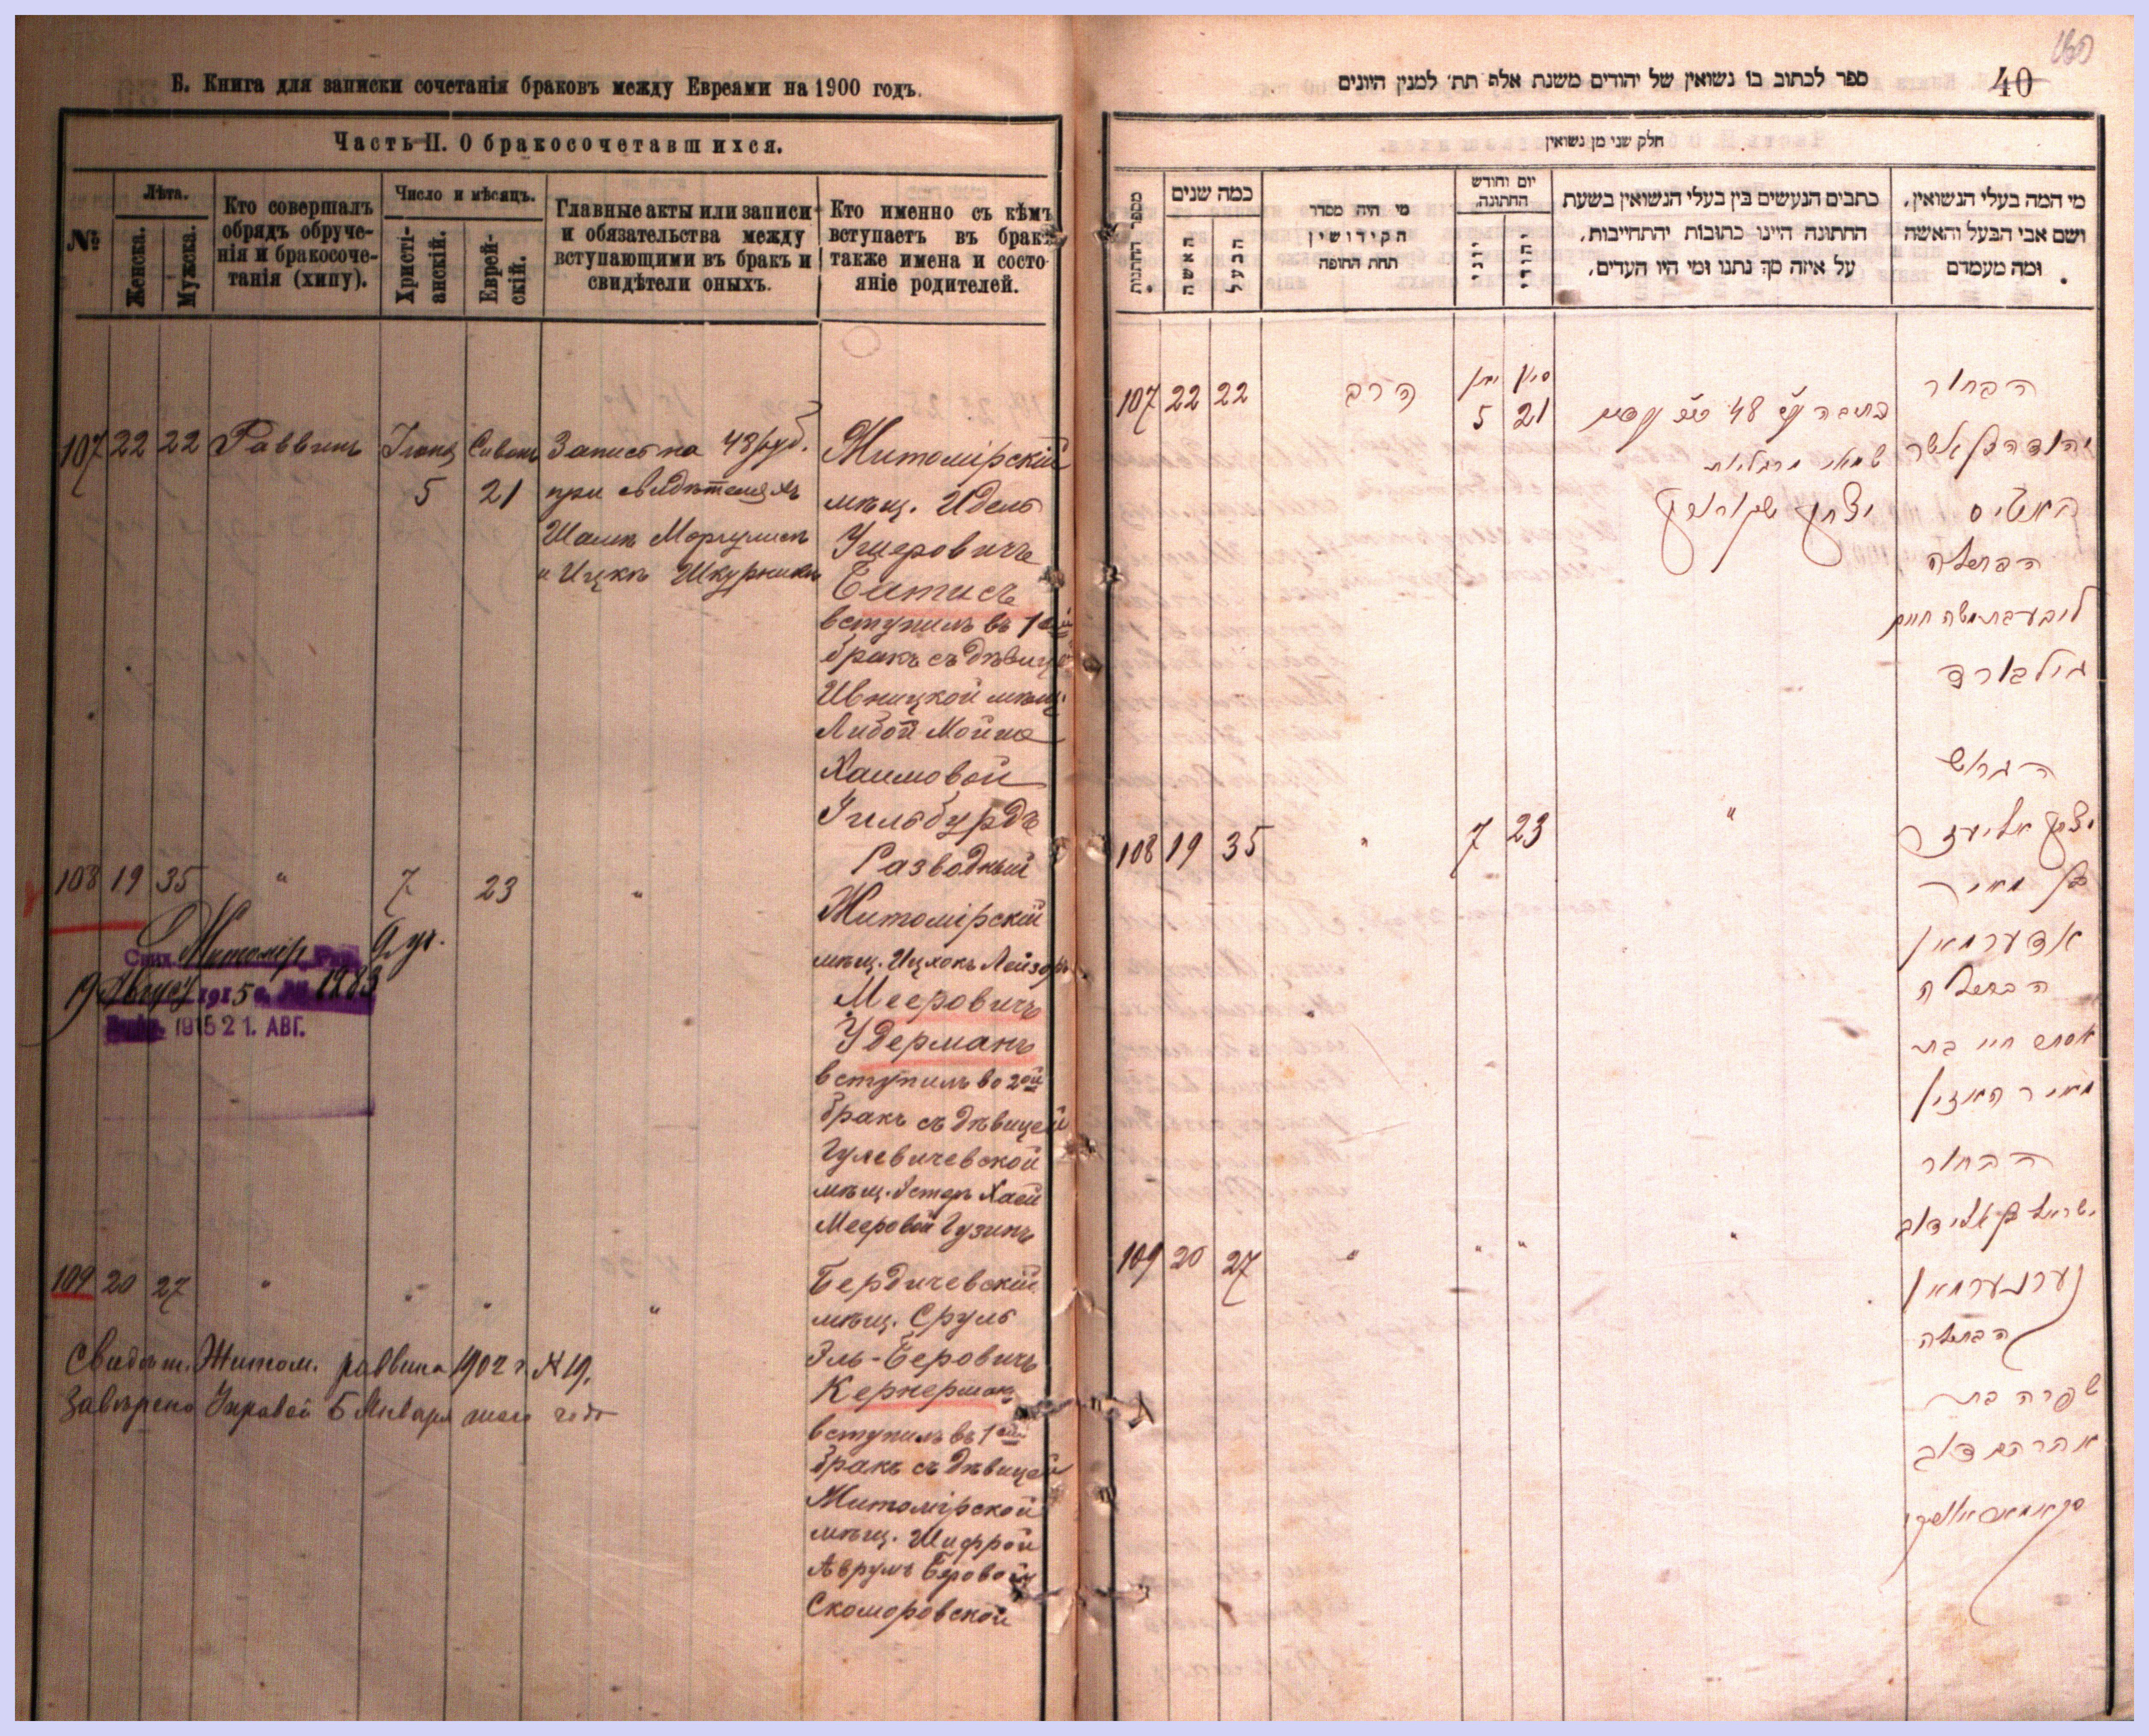 Б. Книга для записки сочетанія браковъ между Евреами на 1900 годъ.
Часть II. О бракосочетавшихся.
№
Лѣта.
Женска.
Мужска.
Кто совершалъ
обрядъ обруче-
нія и бракосоче-
танія (хипу).
Число и мѣсяцъ.
Христі-
анскій.
Еврей-
скій.
Главные акты или записи
и обязательства между
вступающими въ бракъ и
свидѣтели оныхъ.
Кто именно съ кѣмъ
вступаетъ въ бракъ
также имена и состо-
яніе родителей.
107 22 22 Раввинъ Іюня 5 Сивонъ 21
Запись на 48 руб.
при свидѣтеляхъ
Шамѣ Моргулисъ
и Ицкѣ Шкурникъ
Житомірскій
мѣщ. Идель
Ушеровичъ
вступилъ въ 1ый
бракъ съ дѣвицей
Ивницкой мѣщ.
Либой Мойше
Хаимовой
Гильбурдъ
108 19 35 " 7 23 "
Разводный
Житомірскій
мѣщ. Ицхокъ Лейзоръ
Мееровичъ
Удерманъ
вступилъ во 2ой
бракъ съ дѣвицей
Гулевичевской
мѣщ. Эстеръ Хаей
Мееровой Гузинъ
Житомір
19 Август 1915 г. № 1283
1915 21. АВГ.
109 20 27 " " " "
Бердичевскій
мѣщ. Сруль
Эль-Беровичъ
Кернерманъ
вступилъ въ 1ый
бракъ съ дѣвицей
Житомірской
мѣщ. Шифрой
Аврумъ Беровой
Скоморовской
Свидѣт. Житом. раввина 1902 г. № 19.
Завѣрено Управой 5 Января
40
ספר לכתוב בו נשואין של יהודים משנת אלף תת׳ למנין היונים
חלק שני מן נשואין
מספר החתונות
כמה שנים
האשה
הבעל
מי היה מסדר
הקידושין
תחת החופה
יום וחודש
החתונה.
יוני
יהודי
כתבים הנעשים בין בעלי הנשואין בשעת
החתונה היינו כתובות יהתחייבות,
על איזה סך נתנו ומי היו העדים,
מי המה בעלי הנשואין,
ושם אבי הבעל והאשה
ומה מעמדם
107 22 22 הרב יוני 5 סיון 21
כתובה 48
שמאי מרגליות
יצחק שקורניק
הבחור
יהודה בן אשר
הבתולה
ליבע בת משה חיים
גילבורד
108 19 35 " 7 23 "
הגרוש
יצחק אליעזר
בן מאיר
אדערמאן
הבתולה
אסתר חיי בת
מאיר הוזין
109 20 27 " " " "
הבחור
ישראל בן אלי דוב
קערנערמאן
הבתולה
שפרה בת
אברהם דוב
סקאמאראווסקי